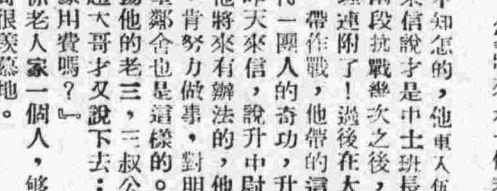 不知怎的，他車入伍
來信說才是中士班長
兩段抗戰幾次之後，
連附了！過後在大
帶作戰，他帶的這
一團人的奇功，升
昨天來信，說升中尉
他將來有辦法的，他
肯努力做事，對明
鄰舍也是這樣的。
揚他的老三，三叔公
大哥才又說下去：
家用費嗎？』
老人家一個人，够
很羨慕地。